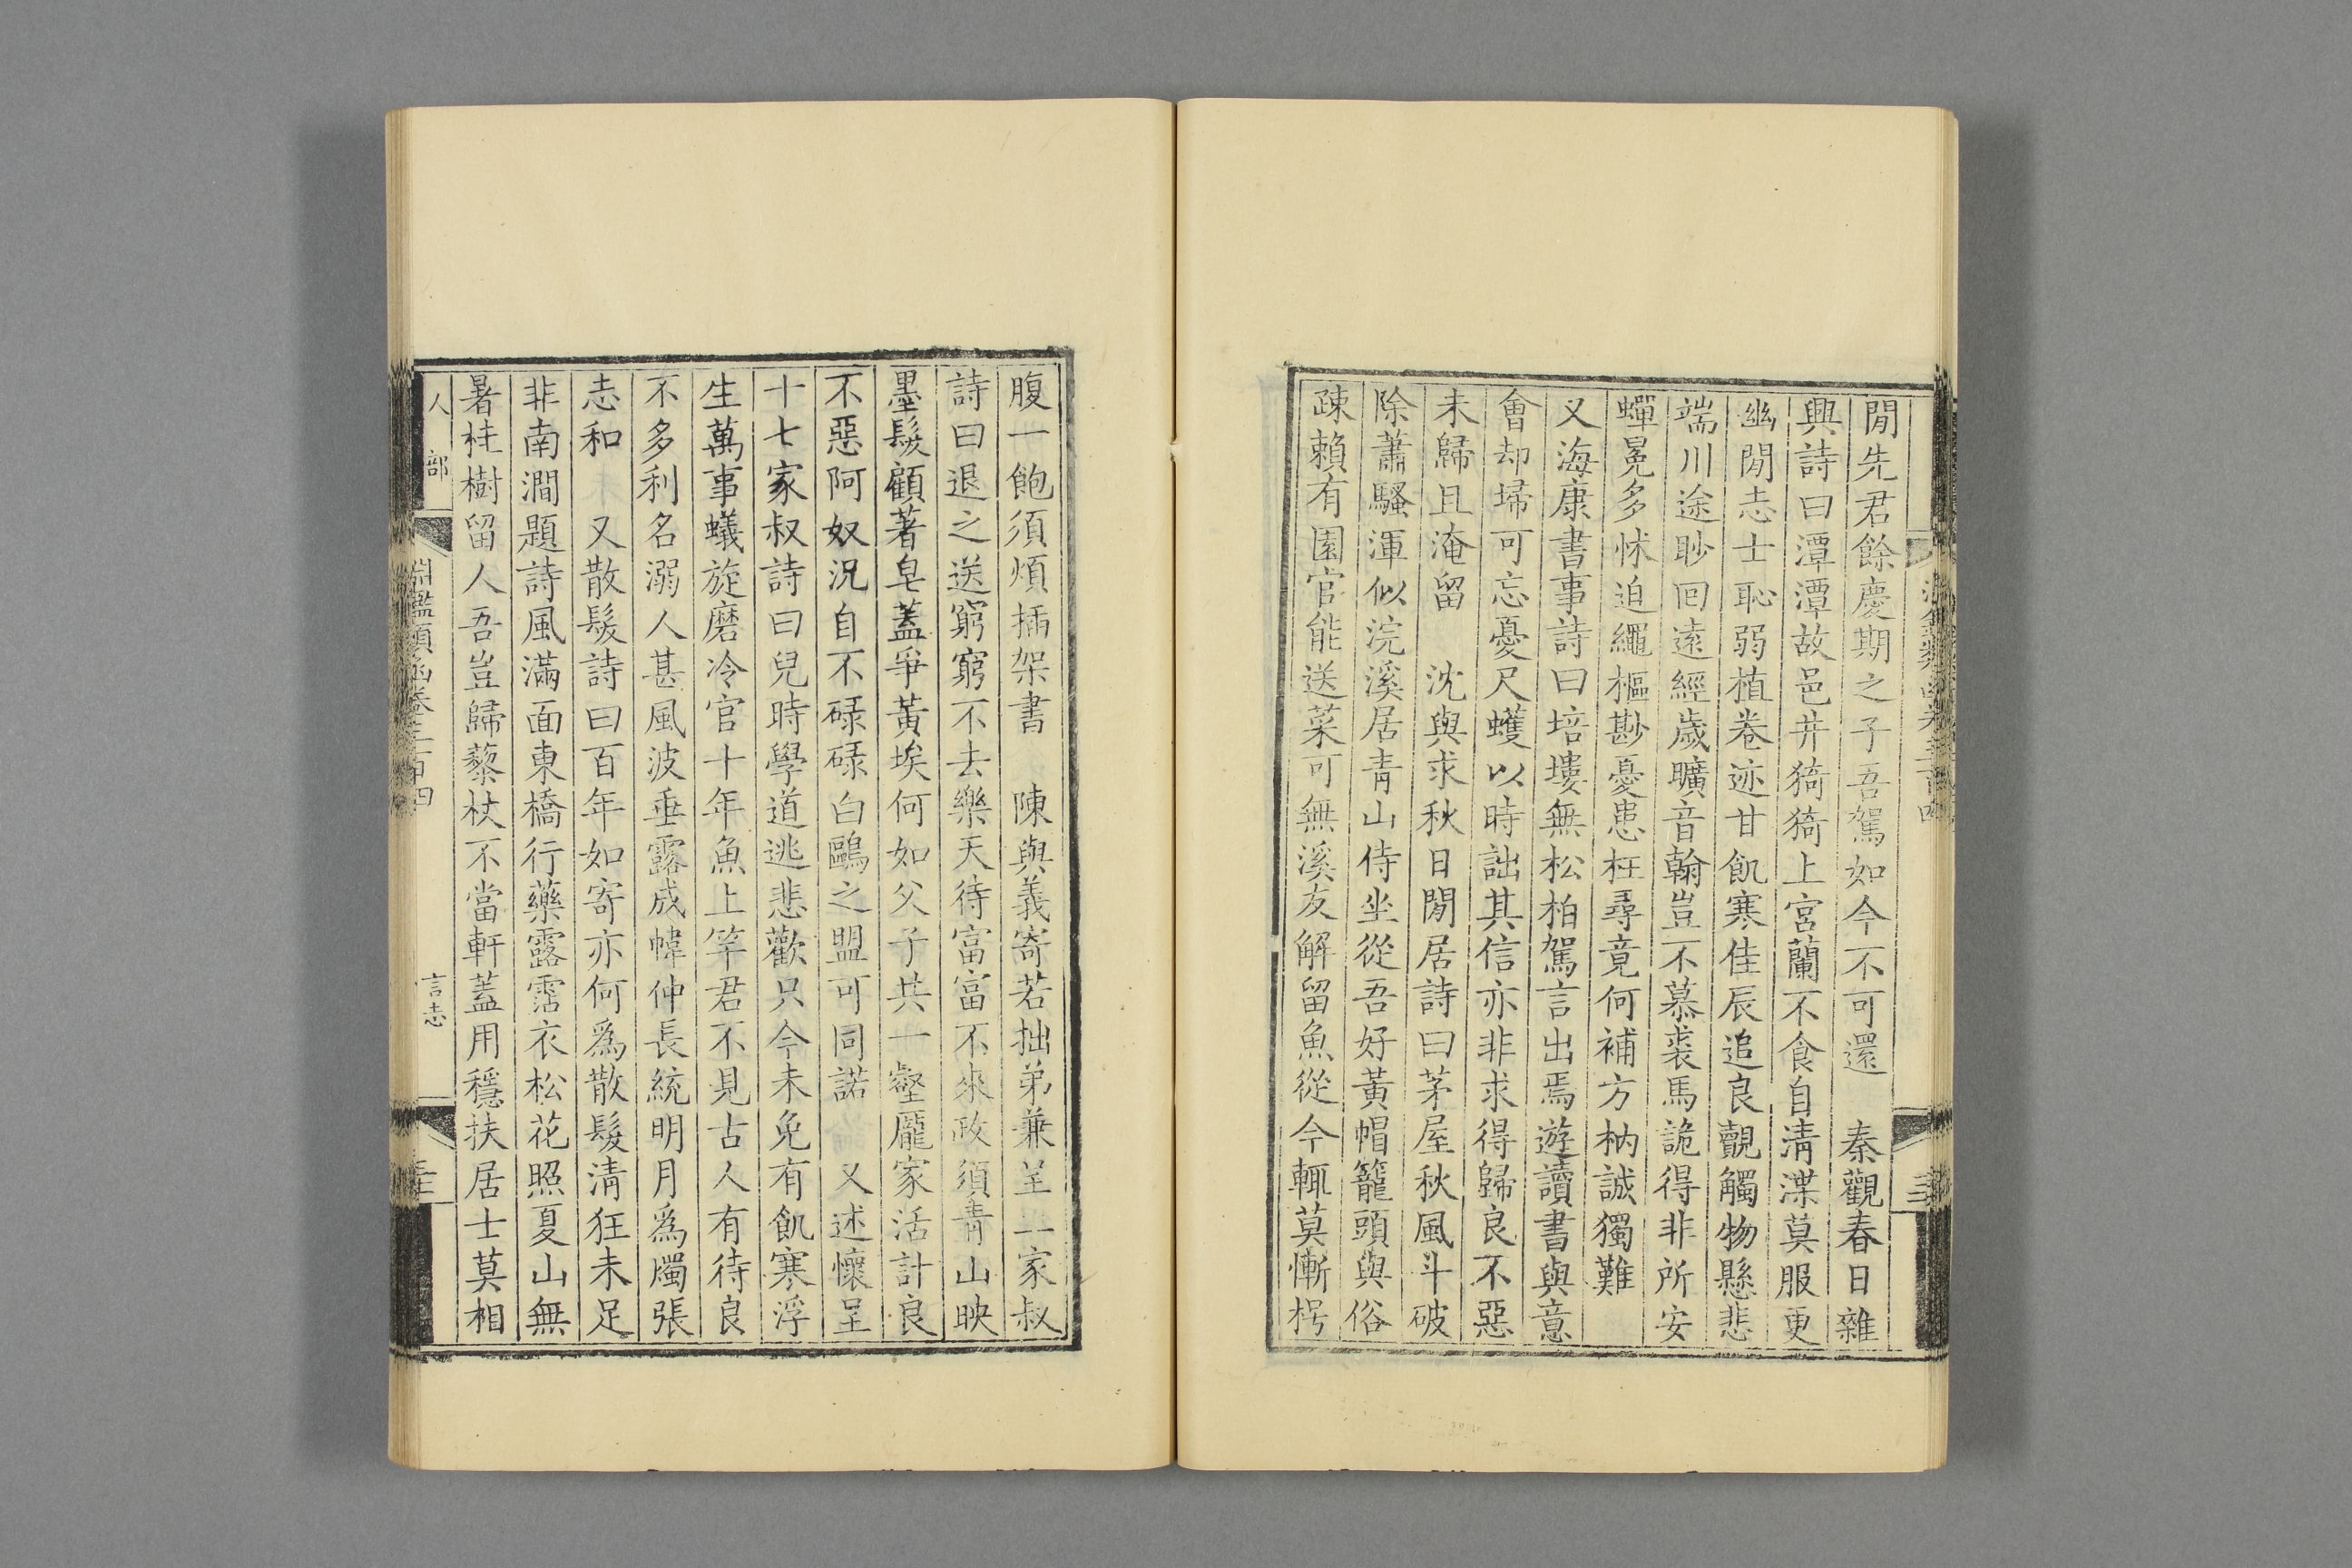 閒先君餘慶期之子吾駕如今不可還　秦觀春日雜
興詩曰潭潭故邑井猗猗上宮蘭不食自清渫莫服更
幽閒志士恥弱植卷迹甘飢寒佳辰追良覿觸物懸悲
端川途眇回遠經歲曠音翰豈不慕裘馬詭得非所安
蟬冕多怵迫繩樞尠憂患枉尋竟何補方枘誠獨難
又海康書事詩曰培塿無松柏駕言出焉遊讀書與意
會却埽可忘憂尺蠖以時詘其信亦非求得歸良不惡
未歸且淹留　沈與求秋日閒居詩曰茅屋秋風斗破
除蕭騷渾似浣溪居青山侍坐從吾好黃帽籠頭與俗
疎賴有園官能送菜可無溪友解留魚從今輒莫慚枵
腹一飽須煩插架書　陳與義寄若拙弟兼呈二家叔
詩曰退之送窮窮不去樂天待富富不來政須青山映
墨髮顧著皂蓋爭黃埃何如父子共一壑龐家活計良
不惡阿奴況自不碌碌白鷗之盟可同諾　又述懷呈
十七家叔詩曰兒時學道逃悲歡只今未免有飢寒浮
生萬事蟻旋磨冷官十年魚上竿君不見古人有待良
不多利名溺人甚風波垂露成幃仲長統明月爲燭張
志和　又散髮詩曰百年如寄亦何爲散髮清狂未足
非南澗題詩風滿面東橋行藥露霑衣松花照夏山無
暑桂樹留人吾豈歸藜杖不當軒蓋用穩扶居士莫相
人部　淵鑑類函卷三百四　言志